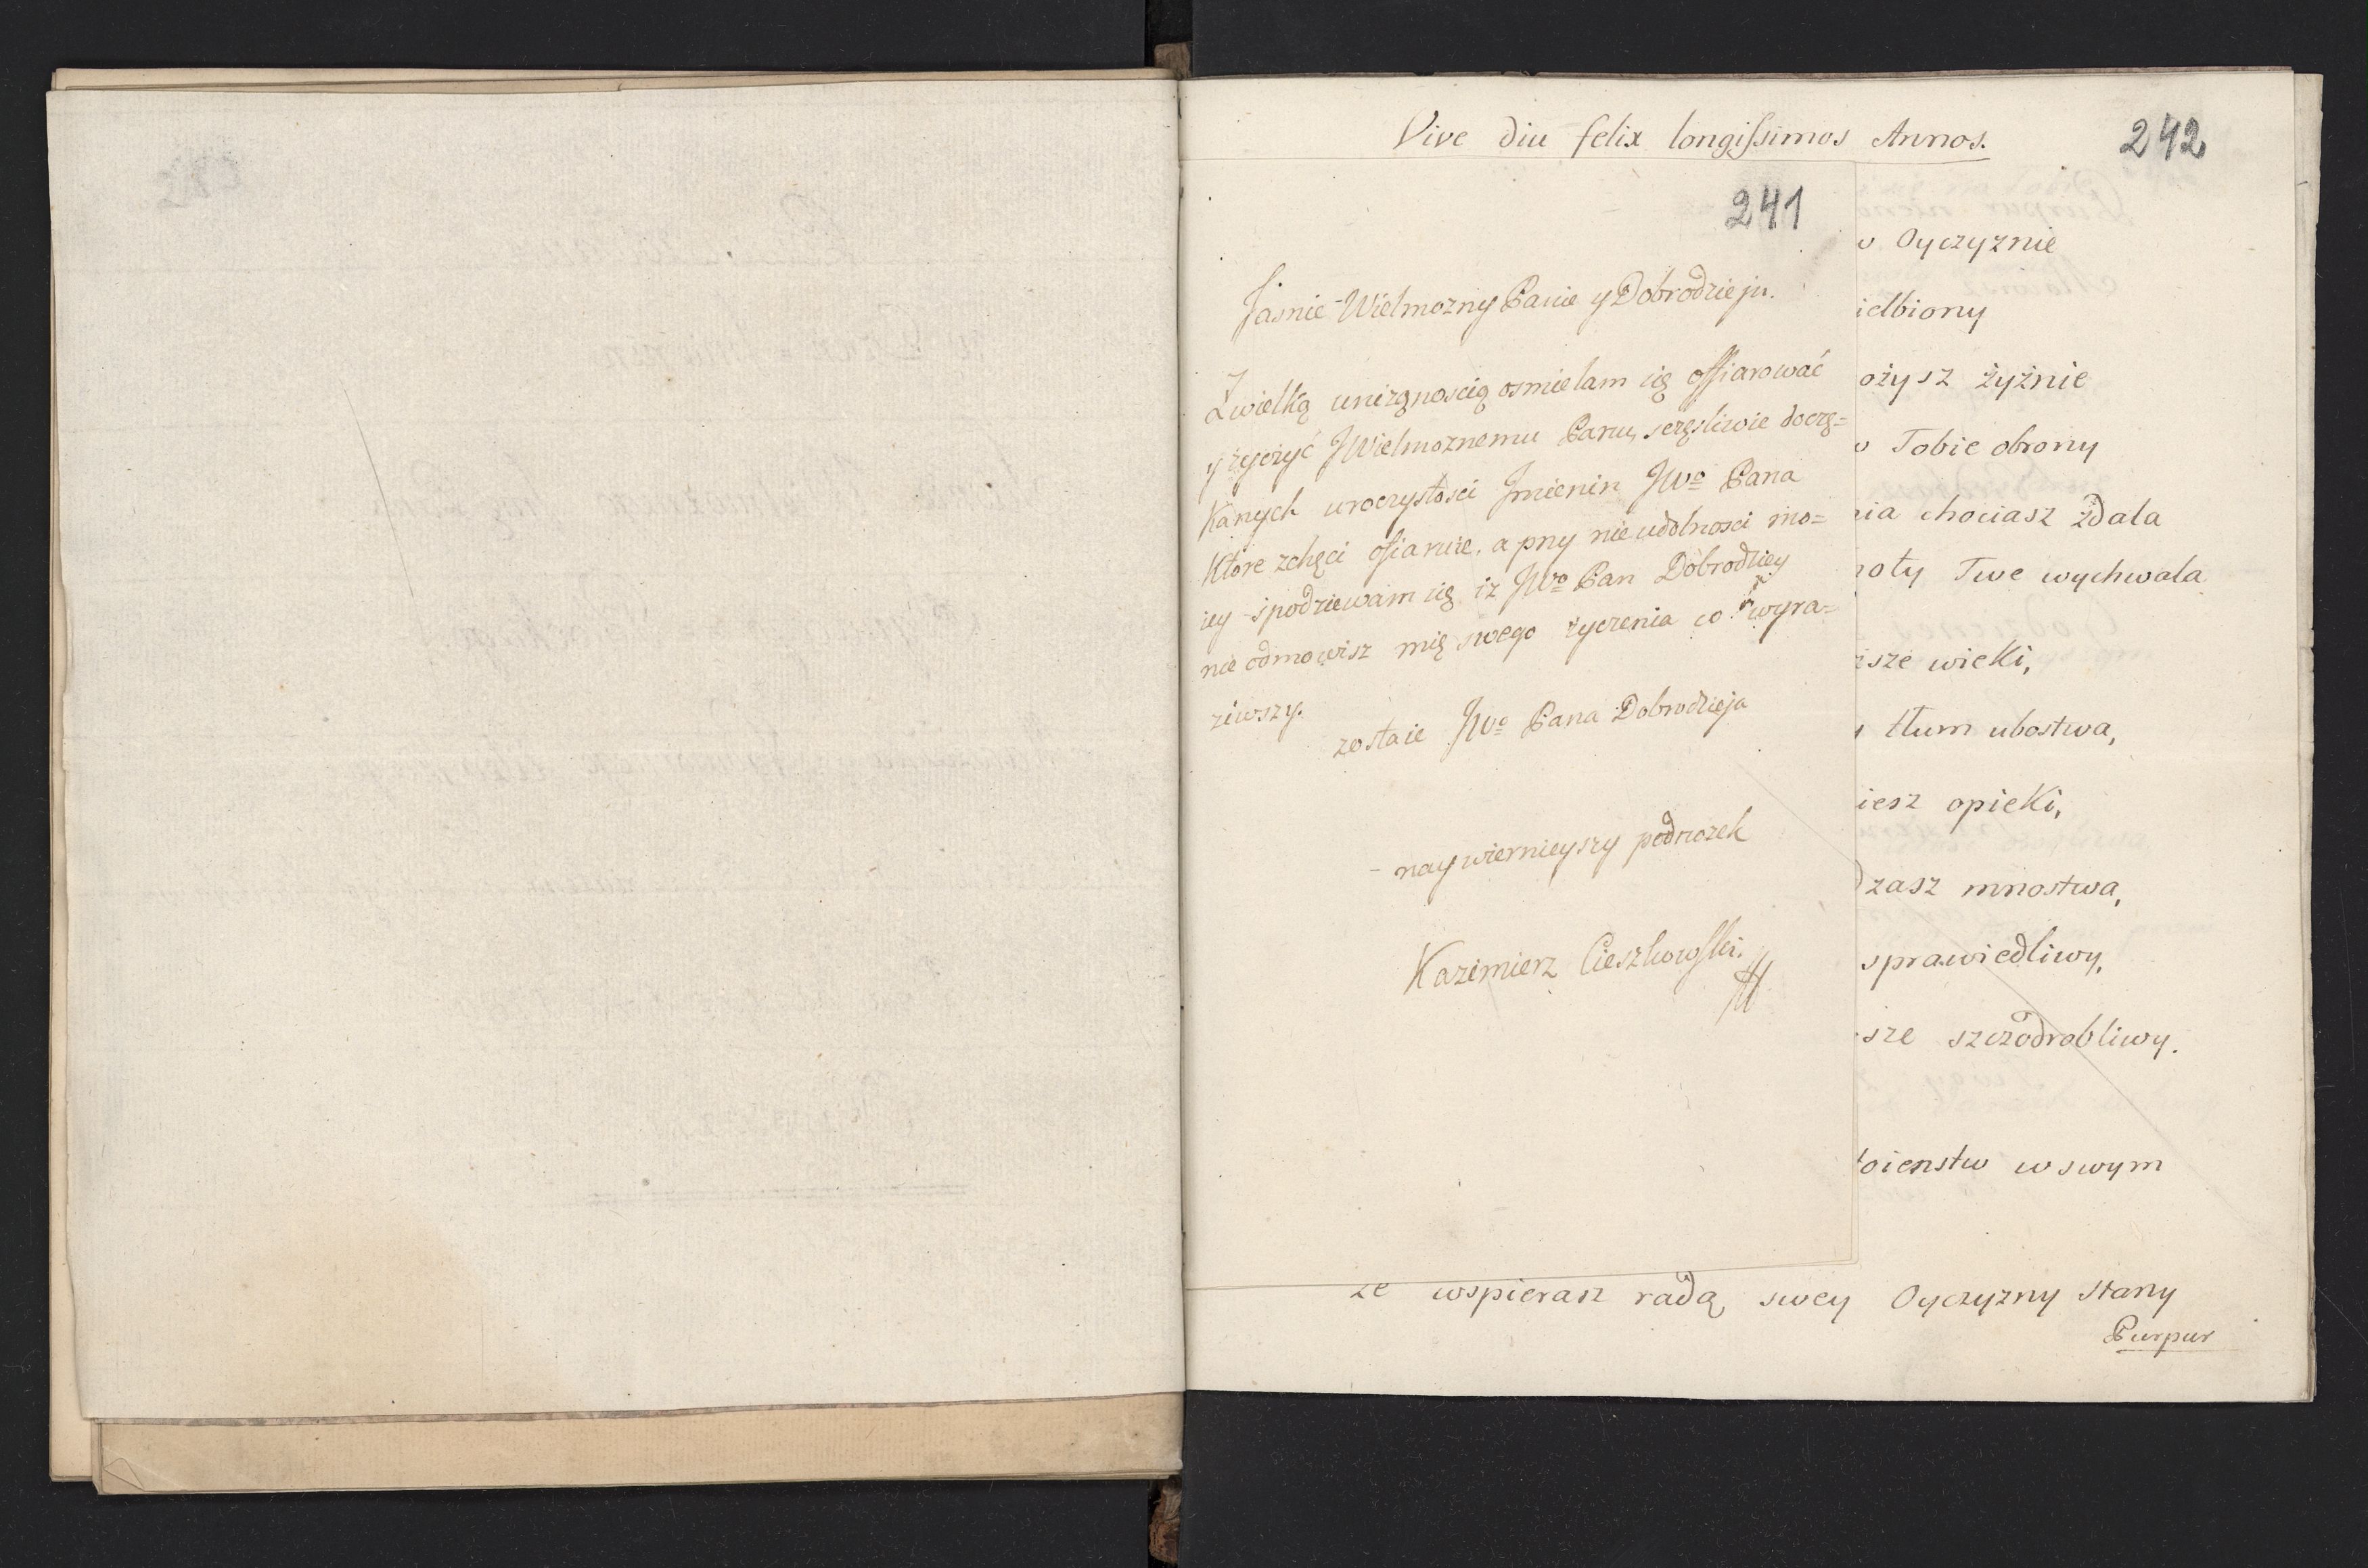 Vive diu felix longissimos Annos.
242
241
Jasnie Wielmozny Panie y Dobrodzieju.
Zwielką uniżonoscią osmielam się offiarować
y zyczyć JWielmoznemu Panu, sczęsliwie docze=
kanych uroczystosci Jmienin JWo Pana
Które zchęci ofiaruie, a przy nieudolnosci mo=
iey spodziewam się iz JWo Pan Dobrodziey
nie odmowisz mię swego zyczenia co wyra=
ziwszy.
zostaie JWo Pana Dobrodzieja
- naywiernieyszy podnozek
Kazimierz Cieszkowski.
Oyczyznie
ielbiony
ożysz żyżnie
Tobie obrony
nia chociasz zdala
noty Twe wychwala
sze wieki,
tłum ubostwa,
iesz opieki,
dzasz mnostwa,
sprawiedliwy,
sze szczodrobliwy.
bienstw w swym
ze wspierasz radą swey Oyczyzny Stany
Purpur